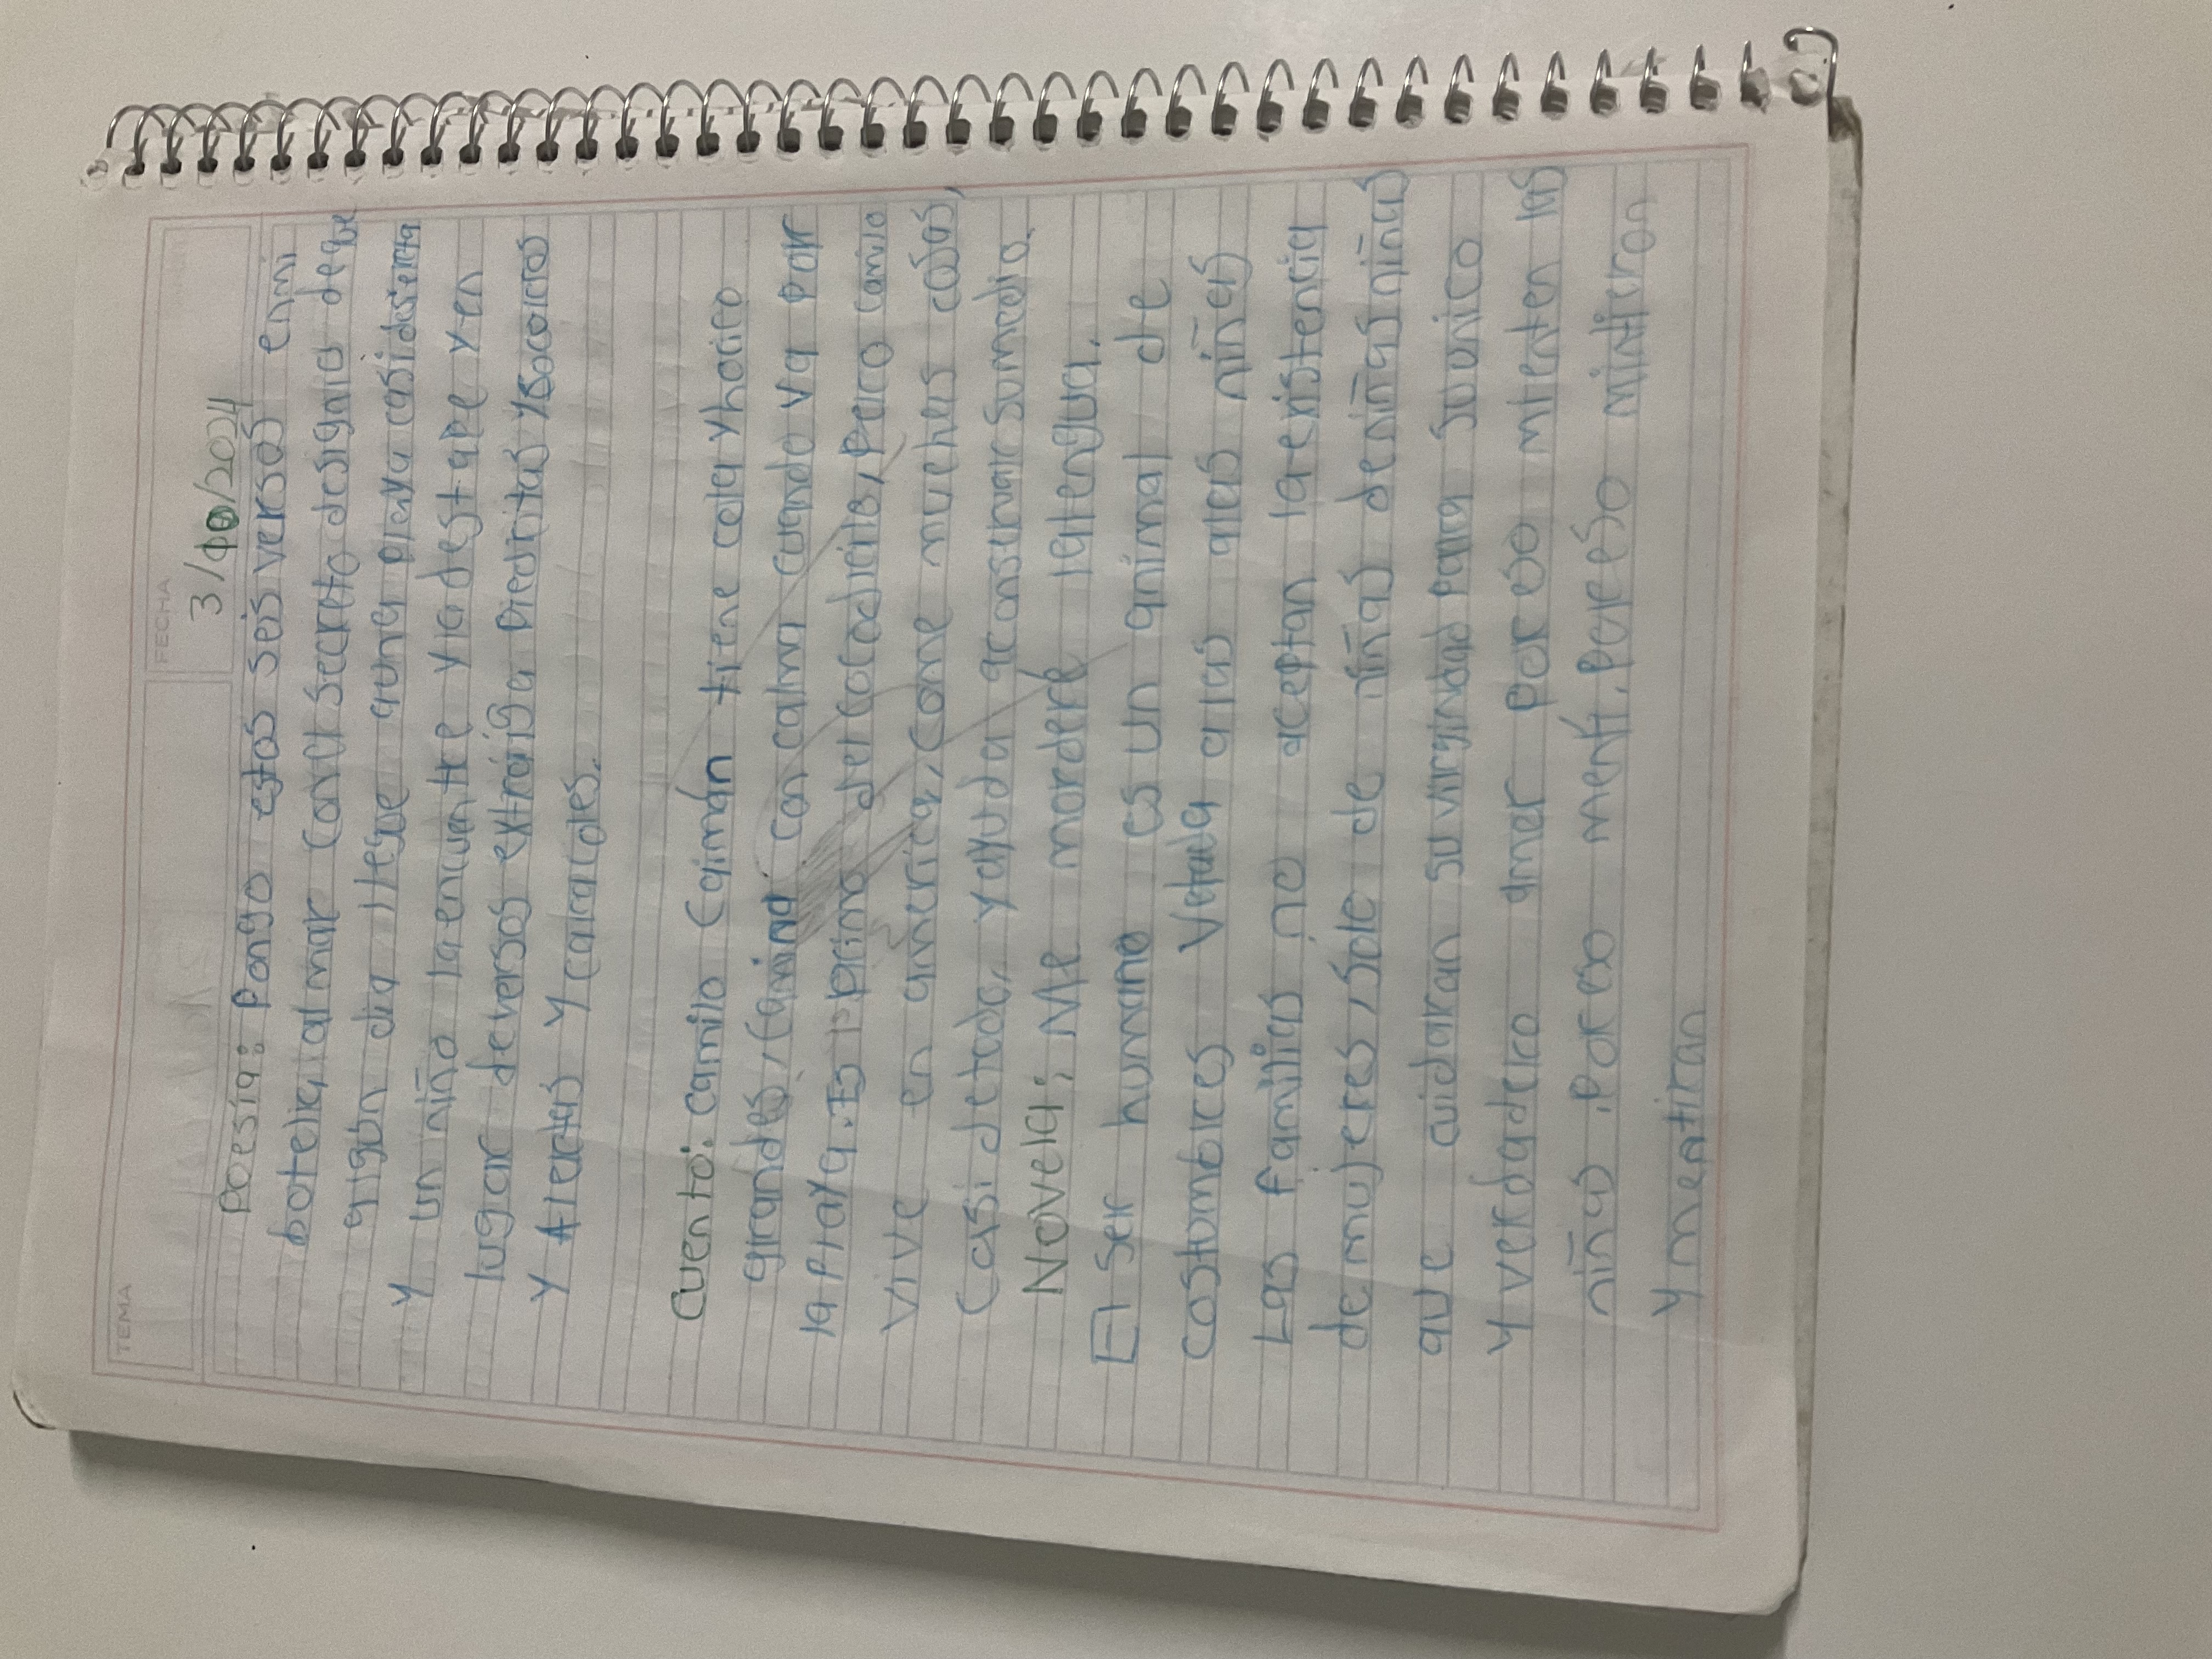 TEMA
FECHA
3/10/2024
Poesía: Pongo estos seis versos en mi
botella al mar con el secreto designio de que
algún dia llegue a una playa casi desierta
Y un niño la encuentre y la destape y en
lugar de versos extraiga piedritas y socorros
Y Alertas Y caracoles.
Cuento: camilo Caimán tiene cola y hocico
grandes, Camina con calma cuando va por
la Playa. Es primo del cocodrilo, pero camilo
vive en america, come muchas cosas,
Casi de todo, y ayuda a conservar su medio.
Novela: Me morderé la lengua.
El ser humano es un animal de
costumbres Vetada a las niñes
Las familias no aceptan la existencia
de mujeres, solo de niñas de niñas niñas
que cuidaran su virginidad para su unico
Y verdadero amer por eso mienten las
niñas, Por eso mentí, Por eso mintieron
Y mentiran